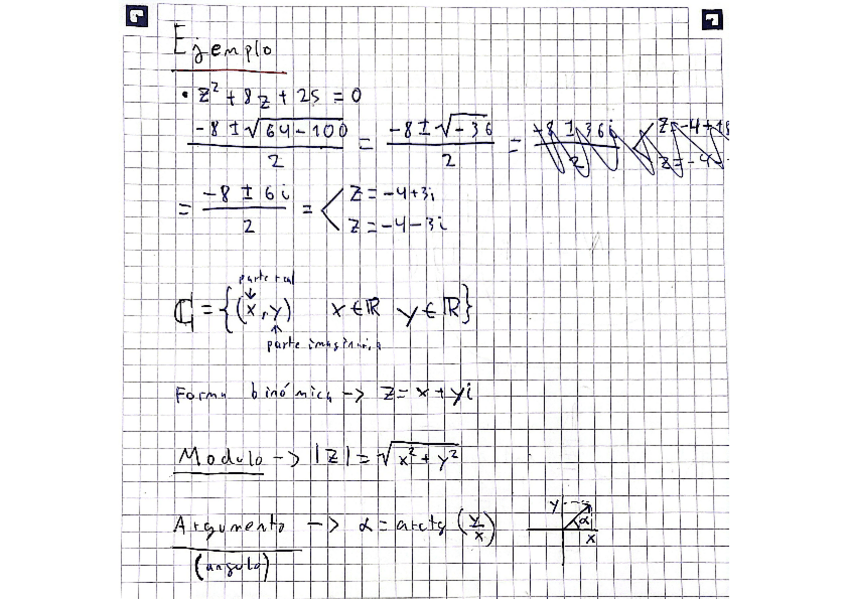 Ejemplo
• z² + 8z + 25 = 0
(-8 ± √(64 - 100))/2 = (-8 ± √(-36))/2 =
= (-8 ± 6i)/2 = < z = -4+3i
z = -4-3i
parte real
ℂ = {(x, y) x ∈ ℝ y ∈ ℝ}
parte imaginaria
Forma binómica -> z = x + yi
Modulo -> |z| = √(x² + y²)
Argumento -> α = arctg (y/x)
(angulo)
y
α
x